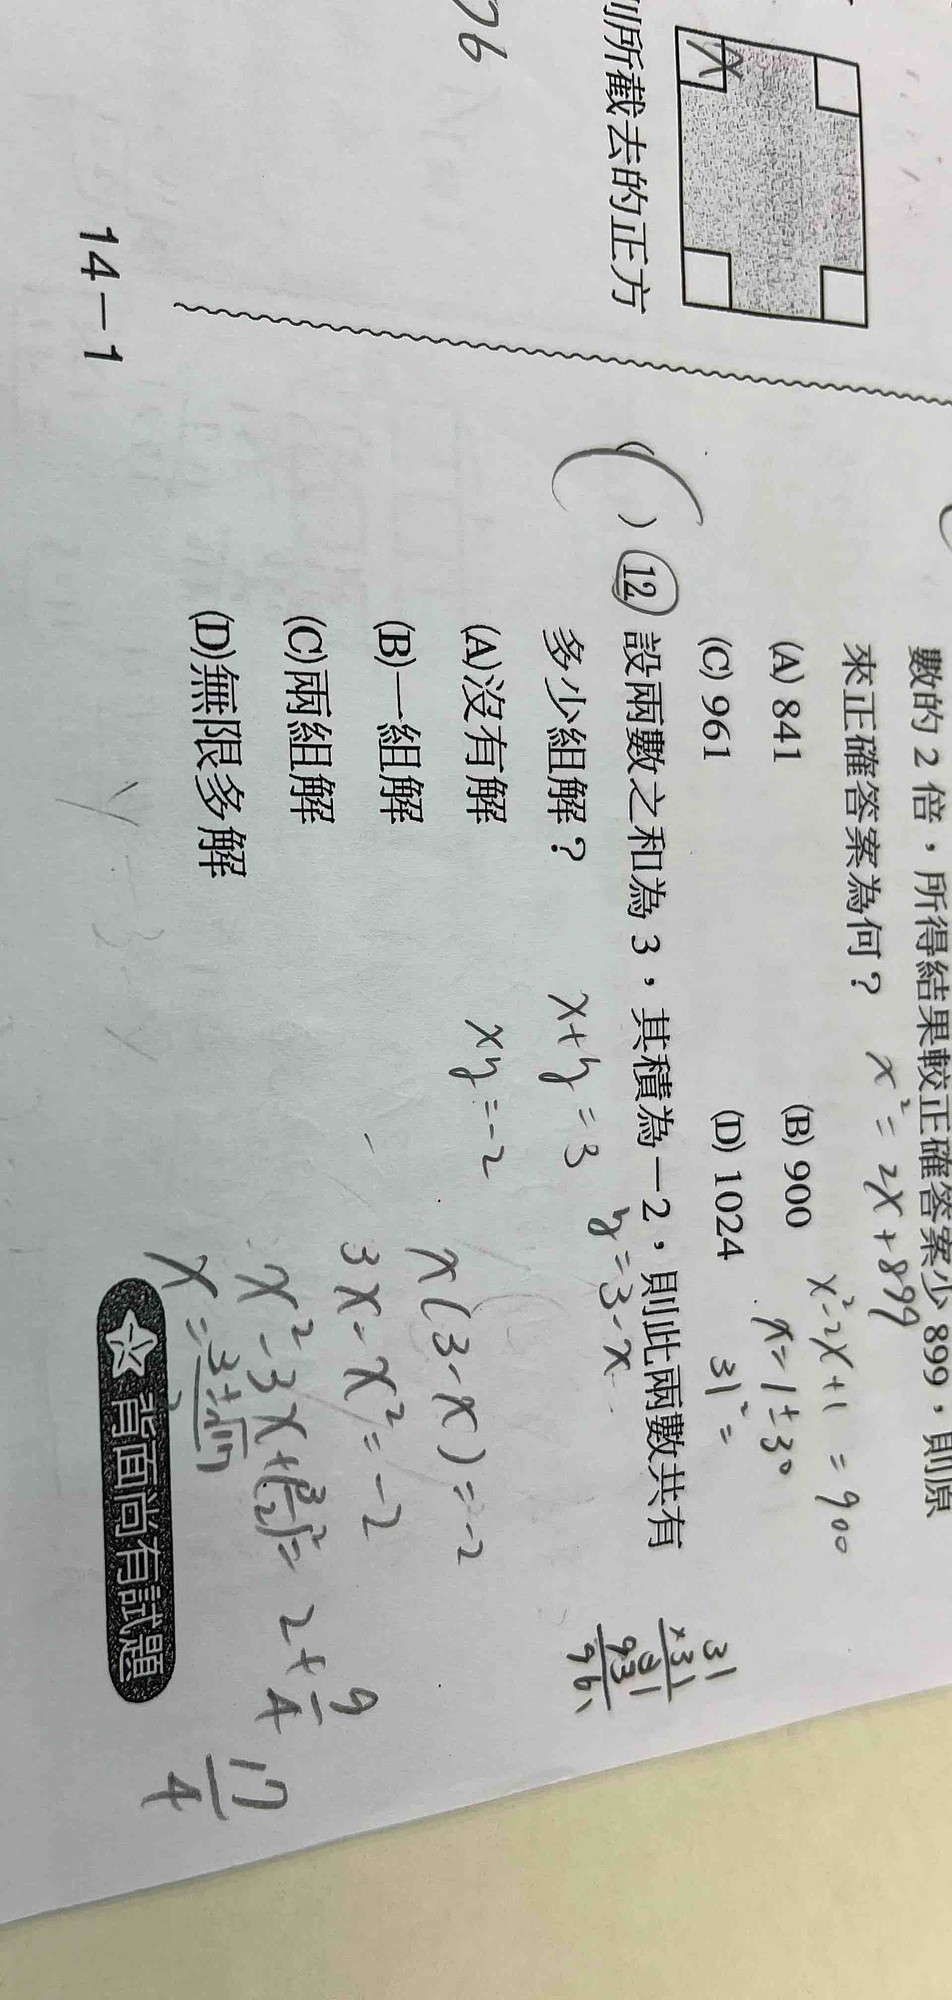 x
列所截去的正方
76
14－1
數的 2 倍，所得結果較正確答案少 899，則原
來正確答案為何？
x²=2x+899
(A) 841
(B) 900
x²-2x+1=900
(C) 961
(D) 1024
x=1±30
31²=
31
×31
31
93
961
( )⑫ 設兩數之和為 3，其積為－2，則此兩數共有
多少組解？
x+y=3
y=3-x
(A)沒有解
xy=-2
x(3-x)=-2
(B)一組解
3x-x²=-2
(C)兩組解
x²-3x+(3/2)²=2+9/4
17/4
(D)無限多解
x=3±√17/2
背面尚有試題